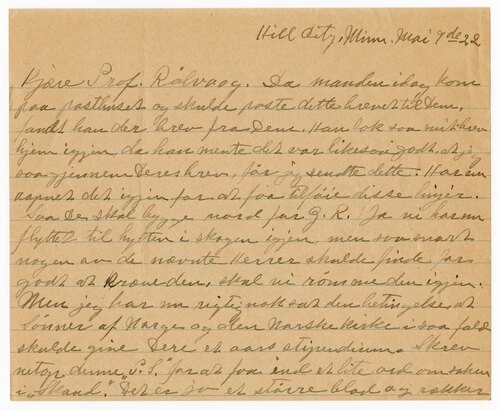 Hill City, Minn. Mai 9de 22
Kjære Prof. Rølvaag. Da manden idag kom
paa posthuset og skulde poste dette brevet til Dem,
fandt han der brev fra Dem. Han tok saa mit brev
hjem igjen da han mente det var likesaa godt at jeg
saa gjennem Deres brev, før jeg sendte dette. Har nu
aapnet det igjen for at faa tilføie disse linjer.
Saa De skal bygge nord for G. R. Ja vi har nu
flyttet til hytten i skogen igjen, men saa snart
nogen av de nævnte Herrer skulde finde for
godt at kræve den, skal vi rømme den igjen.
Men jeg har nu rigtignok sat den betingelse, at
Sønner af Norge og den Norske Kirke i saa fald
skulde give Dere et aars stipendium. Skrev
netop denne "P.S." for at faa end et lite ord om saken
i "Skand." Det er jo et større blad og rækker